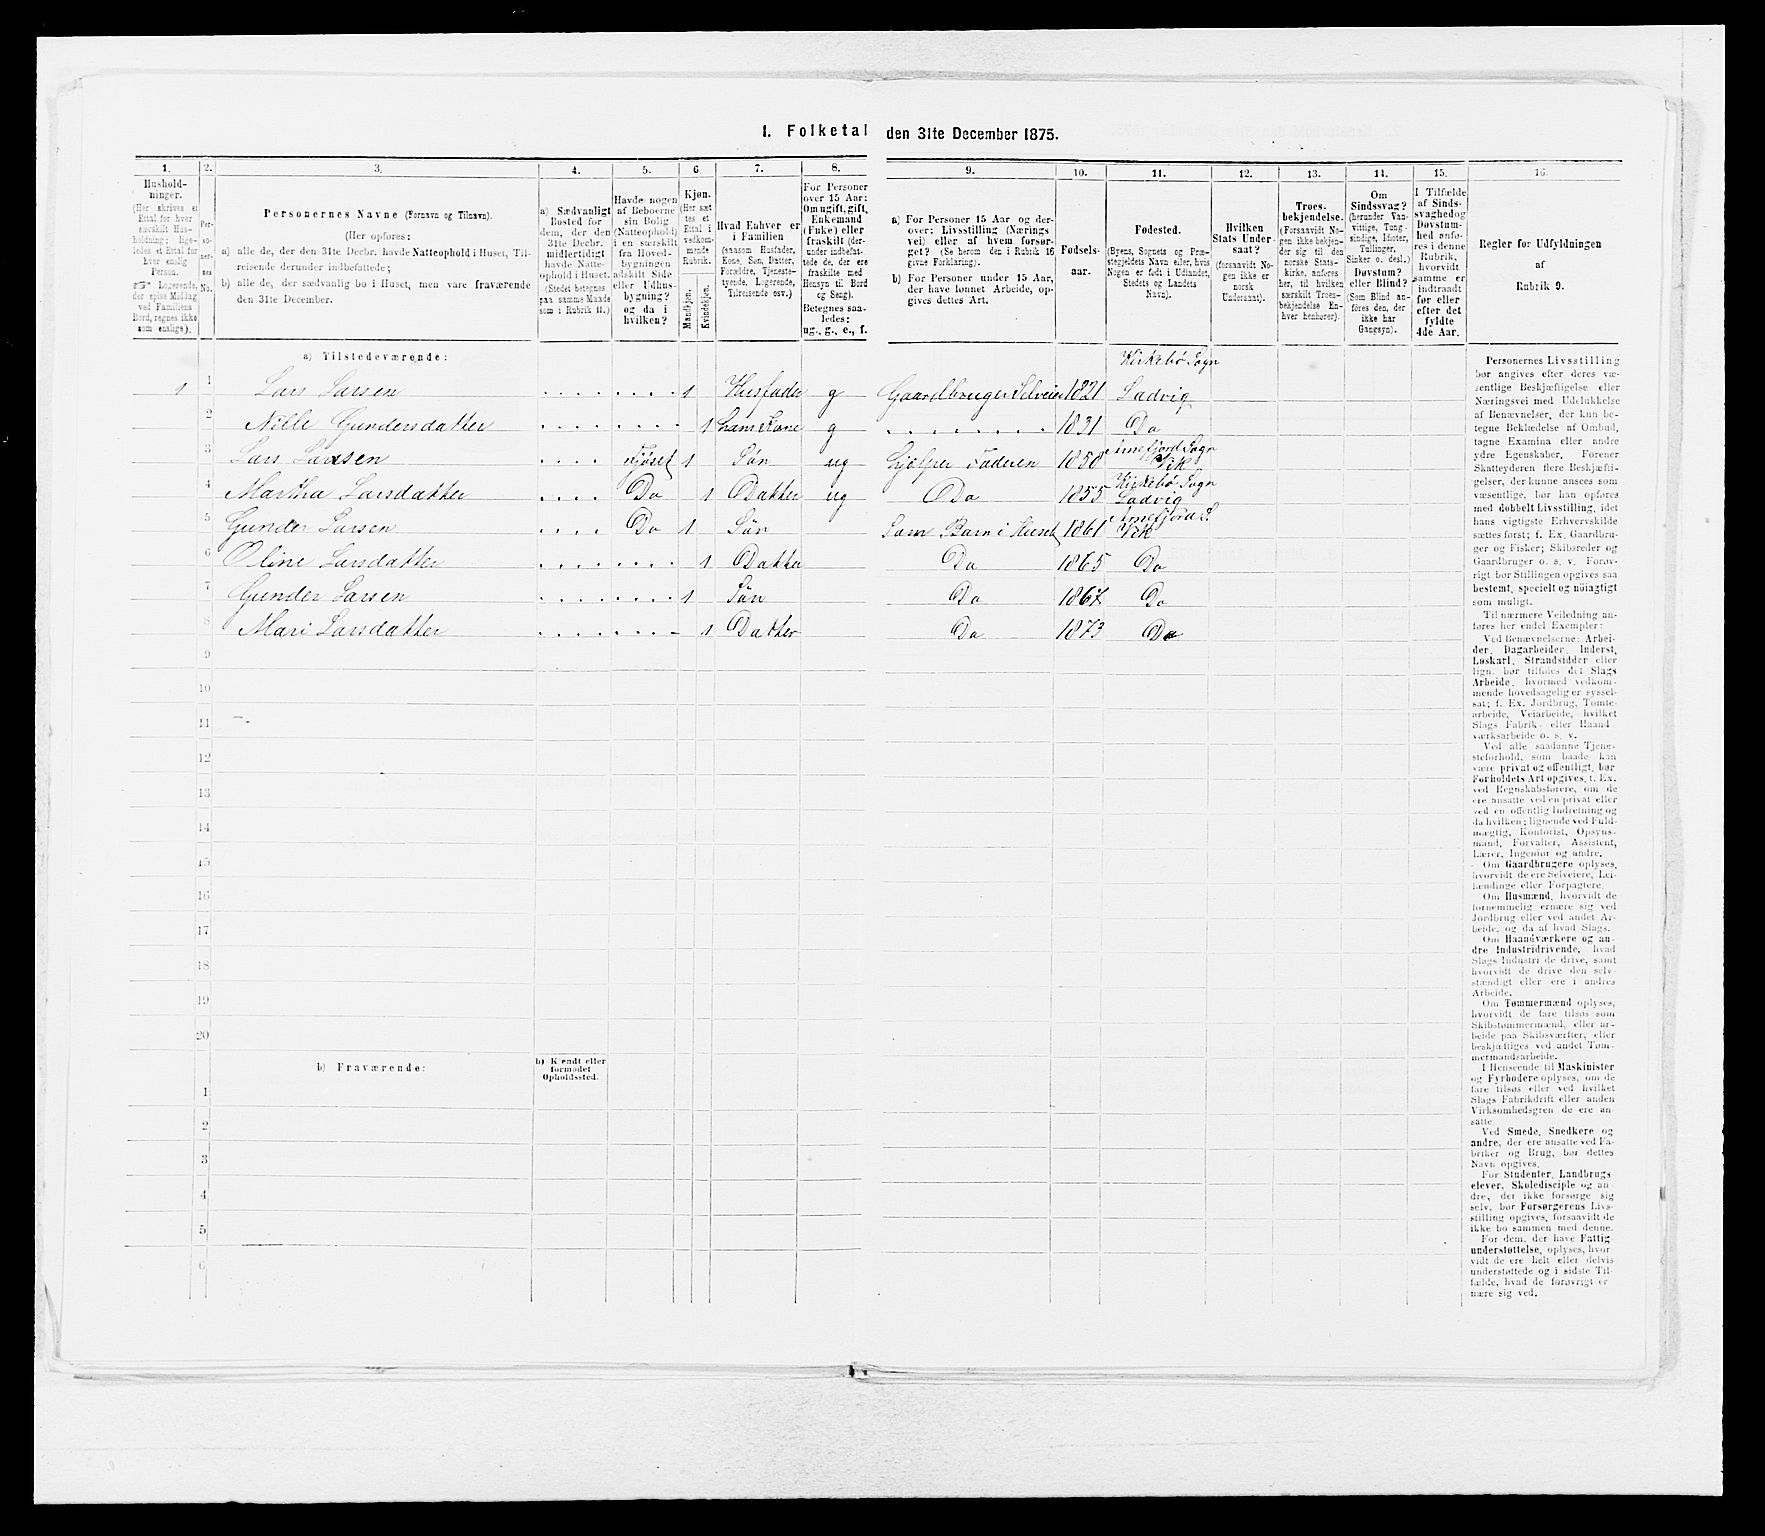 1. Folketal den 31te December 1875.
1. 2. 3. 4. 5. 6. 7. 8. 9. 10. 11. 12. 13. 14. 15. 16.
Hushold-
ninger.
(Her skrives et
Ettal for hver
særskilt Hus-
holdning; lige-
ledes et Ettal for
hver enslig
Person.
Logerende,
der spise Middag
ved Familiens
Bord, regnes ikke
som enslige).
Per-
so-
ner-
nes
No.
Personernes Navne (Fornavn og Tilnavn).
(Her opføres:
a) alle de, der den 31te Decbr. havde Natteophold i Huset, Til-
reisende derunder indbefattede;
b) alle de, der sædvanlig bo i Huset, men vare fraværende
den 31te December.
a) Sædvanligt
Bosted for
dem, der den
31te Decbr.
midlertidigt
havde Natte-
ophold i Huset.
(Stedet betegnes
paa samme Maade
som i Rubrik 11.)
Havde nogen
af Beboerne
sin Bolig
(Natteophold)
i en særskilt
fra Hoved-
bygningen
adskilt Side
eller Udhus-
bygning?
og da i
hvilken?
Kjøn.
(Her sæt
tes et
Ettal i
vedkom-
mende
Rubrik.
Mandkjøn.
Kvindekjøn.
Hvad Enhver er
i Familien
(saasom Husfader,
Kone, Søn, Datter,
Forældre, Tjeneste-
tyende, Logerende,
Tilreisende osv.)
For Personer
over 15 Aar:
Om ugift, gift,
Enkemand
(Enke) eller
fraskilt (der-
under indbefat-
tede de, der ere
fraskilte med
Hensyn til Bord
og Seng).
Betegnes saa-
ledes:
ug., g., e., f.
a) For Personer 15 Aar og der-
over: Livsstilling (Nærings
vei) eller af hvem forsør-
get? (Se herom den i Rubrik 16
givne Forklaring).
b) For Personer under 15 Aar,
der have lønnet Arbeide, op-
gives dettes Art.
Fødsels-
aar.
Fødested.
(Byens, Sognets og Præ-
stegjeldets Navn eller, hvis
Nogen er født i Udlandet,
Stedets og Landets
Navn).
Hvilken
Stats Under-
saat?
(forsaavidt No-
gen ikke er
norsk
Undersaat).
Troes-
bekjendelse.
(Forsaavidt No-
gen ikke bekjen-
der sig til den
norske Stats-
kirke, anføres
her, til hvilken
særskilt Troes-
bekjendelse En-
hver henhører).
Om
Sindssvag?
(herunder Van-
vittige, Tung-
sindige, Idioter,
Tullinger,
Sinker o. desl.)
Døvstum?
eller Blind?
(Som Blind an-
føres den, der
ikke har
Gangsyn).
I Tilfælde
af Sinds-
svaghed og
Døvstum-
hed anfø-
res i denne
Rubrik,
hvorvidt
samme er
indtraadt
før eller
efter det
fyldte
4de Aar.
Regler for Udfyldningen
af
Rubrik 9.
a) Tilstedeværende:
Kirkebø Sogn
1 1 Lars Larsen 1 Husfader g Gaardbruger Selveier 1821 Ladvig
2 Nille Gundersdatter 1 hans Kone g 1831 Do
Arnefjord Sogn
3 Lars Larsen Fjøset 1 Søn ug hjælper Faderen 1850 Vik
Kirkebø Sogn
4 Martha Larsdatter Do 1 Datter ug Do 1855 Ladvig
Arnefjord S.
5 Gunder Larsen Do 1 Søn Som Barn i Huset 1861 Vik
6 Oline Larsdatter 1 Datter Do 1865 Do
7 Gunder Larsen 1 Søn Do 1867 Do
8 Mari Larsdatter 1 Datter Do 1873 Do
9
10
11
12
13
14
15
16
17
18
19
20
b) Fraværende:
b) Kjendt eller
formodet
Opholdssted.
1
2
3
4
5
6
Personernes Livsstilling
bør angives efter deres væ-
sentlige Beskjæftigelse eller
Næringsvei med Udelukkelse
af Benævnelser, der kun be-
tegne Beklædelse af Ombud,
tagne Examina eller andre
ydre Egenskaber. Forener
Skatteyderen flere Beskjæfti-
gelser, der kunne ansees som
væsentlige, bør han opføres
med dobbelt Livsstilling, idet
hans vigtigste Erhvervskilde
sættes først; f. Ex. Gaardbru-
ger og Fisker; Skibsreder og
Gaardbruger o. s. v. Forøv-
rigt bør Stillingen opgives saa
bestemt, specielt og nøiagtigt
som muligt.
Til nærmere Veiledning an-
føres her endel Exempler:
Ved Benævnelserne: Arbei-
der, Dagarbeider, Inderst,
Løskarl, Strandsidder eller
lign. bør tilføies det Slags
Arbeide, hvormed vedkom-
mende hovedsagelig er syssel-
sat; f. Ex. Jordbrug, Tomte-
arbeide, Veiarbeide, hvilket
Slags Fabrik- eller Haand-
værksarbeide o. s. v.
Ved alle saadanne Tjene-
steforhold, som baade kan
være privat og offentligt, bør
Forholdets Art opgives, f. Ex.
ved Regnskabsførere, om de
ere ansatte ved en privat eller
ved en offentlig Indretning og
da hvilken; lignende ved Fuld-
mægtig, Kontorist, Opsyns-
mand, Forvalter, Assistent,
Lærer, Ingeniør og andre.
Om Gaardbrugere oplyses,
hvorvidt de ere Selveiere, Lei-
lændinge eller Forpagtere.
Om Husmænd, hvorvidt de
fornemmelig ernære sig ved
Jordbrug eller ved andet Ar-
beide, og da af hvad Slags.
Om Haandværkere og an-
dre Industridrivende, hvad
Slags Industri de drive, samt
hvorvidt de drive den selv-
stændigt eller ere i andres
Arbeide.
Om Tømmermænd oplyses,
hvorvidt de fare tilsøs som
Skibstømmermænd, eller ar-
beide paa Skibsværfter, eller
beskjæftiges ved andet Tøm-
mermandsarbeide.
I Henseende til Maskinister
og Fyrbødere oplyses, om de
fare tilsøs eller ved hvilket
Slags Fabrikdrift eller anden
Virksomhedsgren de ere an-
satte.
Ved Smede, Snedkere og
andre, der ere ansatte ved Fa-
briker og Brug, bør dettes
Navn opgives.
For Studenter, Landbrugs
elever, Skoledisciple og an-
dre, der ikke forsørge sig
selv, bør Forsørgerens Livs-
stilling opgives, forsaavidt de
ikke bo sammen med denne.
For dem, der have Fattig-
understøttelse, oplyses, hvor-
vidt de ere helt eller delvis
understøttede og i sidste Til-
fælde, hvad de forøvrigt er-
nære sig ved.